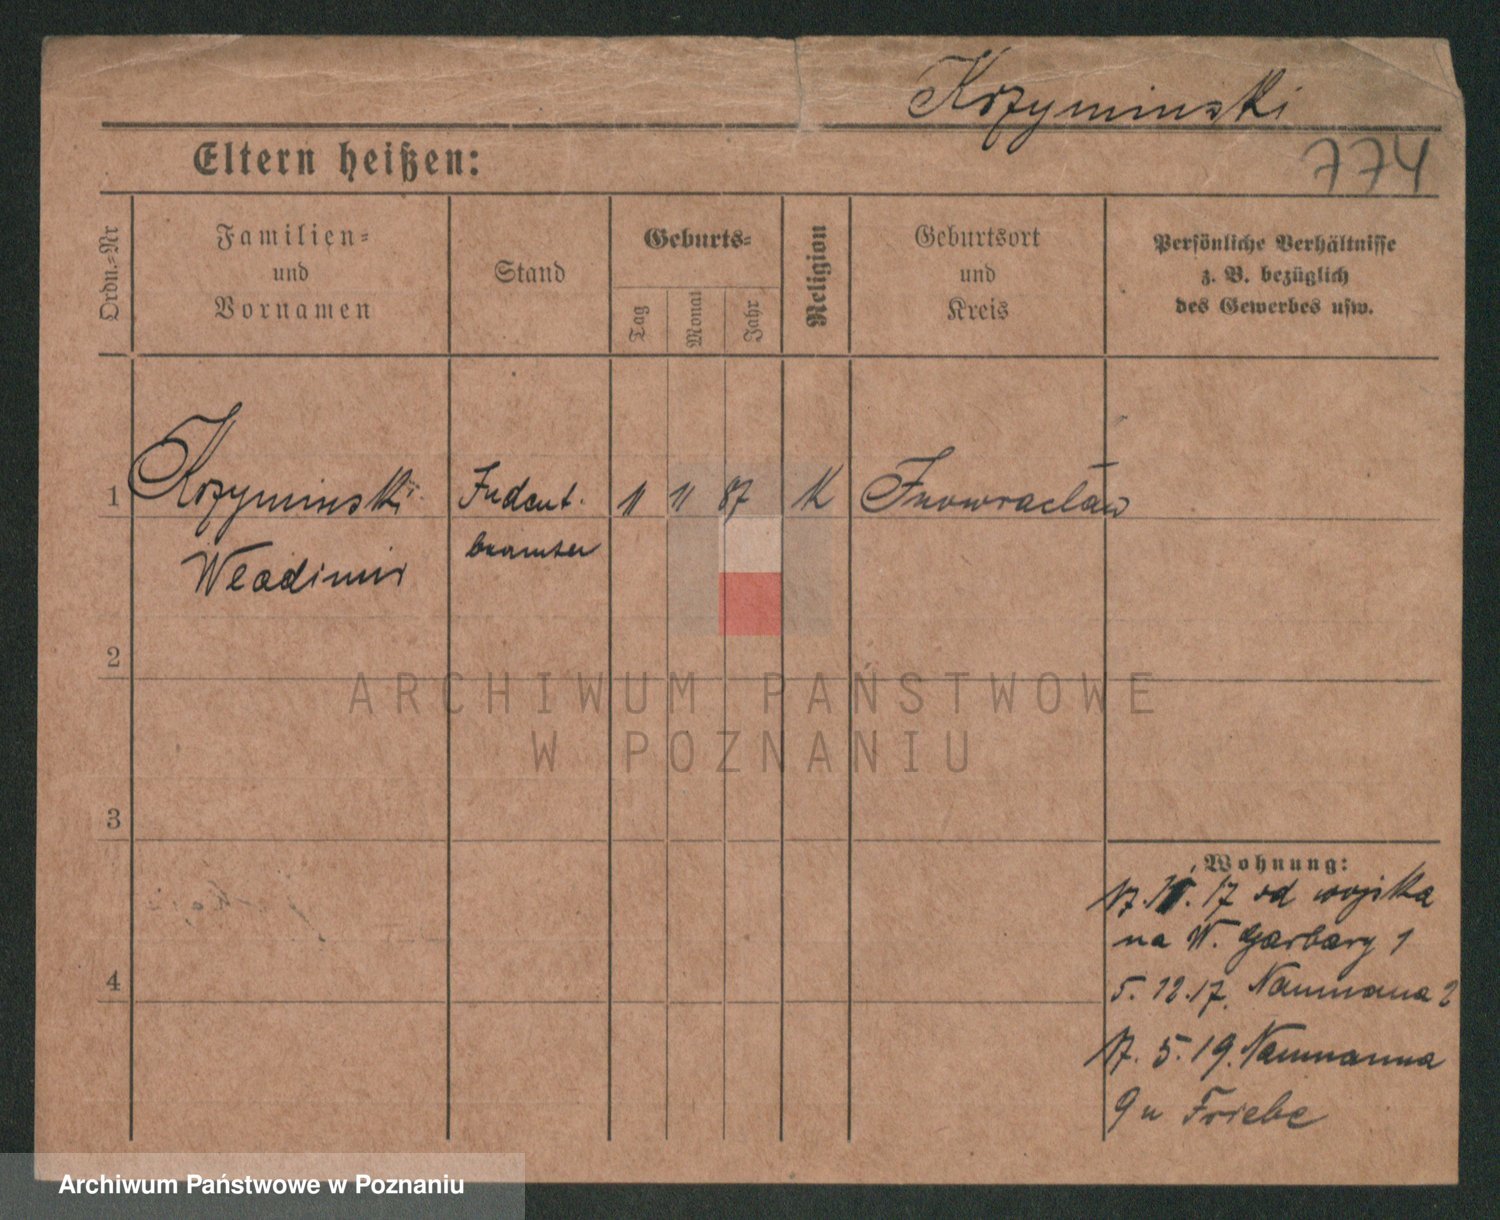 Krzyminski
774
Eltern heißen:
Ordn.=Nr
Familien=
und
Vornamen
Stand
Geburts=
Tag
Monat
Jahr
Religion
Geburtsort
und
Kreis
Persönliche Verhältnisse
z. B. bezüglich
des Gewerbes usw.
1
Krzyminski
Wladimir
beamter
11 11 87
K
Inowracław
2
3
4
Wohnung:
17 od wojska
na W. Garbary 1
5.12.17. Naumana 2
17. 5. 19. Naumanna
9 u Friebe
ARCHIWUM PAŃSTWOWE
W POZNANIU
Archiwum Państwowe w Poznaniu